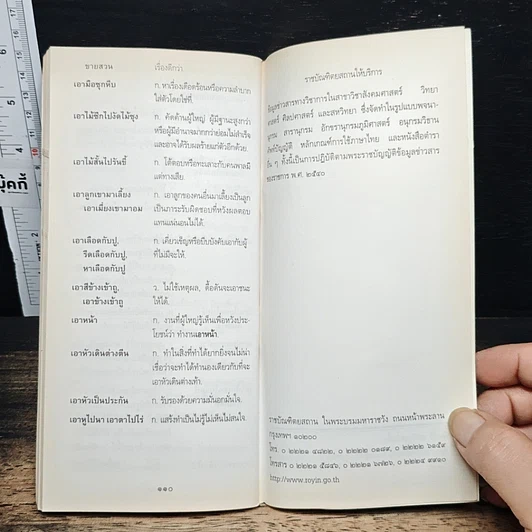 ชายสวน เรื่องดีกว่า
เอามือซุกหีบ ก. หาเรื่องเดือดร้อนหรือความลำบาก
ใส่ตัวโดยใช่ที่.
เอาไม้ซีกไปงัดไม้ซุง ก. คัดค้านผู้ใหญ่ ผู้มีฐานะสูงกว่า
หรือผู้มีอำนาจมากกว่าย่อมไม่สำเร็จ
และอาจได้รับผลร้ายแก่ตัวอีกด้วย.
เอาไม้สั้นไปรันขี้ ก. โต้ตอบหรือทะเลาะกับคนพาลมี
แต่ทางเสีย.
เอาลูกเขามาเลี้ยง ก. เอาลูกของคนอื่นมาเลี้ยงเป็นลูก
เอาเมี่ยงเขามาอม เป็นภาระรับผิดชอบที่หวังผลตอบ
แทนแน่นอนไม่ได้.
เอาเลือดกับปู, ก. เคี่ยวเข็ญหรือบีบบังคับเอากับผู้
รีดเลือดกับปู, ที่ไม่มีจะให้.
หาเลือดกับปู
เอาสีข้างเข้าถู, ว. ไม่ใช้เหตุผล, ดื้อดันจะเอาชนะ
เอาข้างเข้าถู ให้ได้.
เอาหน้า ก. งานที่ผู้ใหญ่รู้เห็นเพื่อหวังประ-
โยชน์ว่า ทำงานเอาหน้า.
เอาหัวเดินต่างตีน ก. ทำในสิ่งที่ทำได้ยากยิ่งจนไม่น่า
เชื่อว่าจะทำได้ทำนองเดียวกับที่จะ
เอาหัวเดินต่างเท้า.
เอาหัวเป็นประกัน ก. รับรองด้วยความมั่นอกมั่นใจ.
เอาหูไปนา เอาตาไปไร่ ก. แสร้งทำเป็นไม่รู้ไม่เห็นไม่สนใจ.
๑๑๐
ราชบัณฑิตยสถานให้บริการ
ข้อมูลข่าวสารทางวิชาการในสาขาวิชาสังคมศาสตร์ วิทยา
ศาสตร์ ศิลปศาสตร์ และสหวิทยา ซึ่งจัดทำในรูปแบบพจนา-
นุกรม สารานุกรม อักขรานุกรมภูมิศาสตร์ อนุกรมวิธาน
ศัพท์บัญญัติ หลักเกณฑ์การใช้ภาษาไทย และหนังสือตำรา
อื่น ๆ ทั้งนี้เป็นการปฏิบัติตามพระราชบัญญัติข้อมูลข่าวสาร
ของราชการ พ.ศ. ๒๕๔๐
ราชบัณฑิตยสถาน ในพระบรมมหาราชวัง ถนนหน้าพระลาน
กรุงเทพฯ ๑๐๒๐๐
โทร. ๐ ๒๒๒๑ ๔๘๒๒, ๐ ๒๒๒๒ ๐๑๘๙, ๐ ๒๒๒๒ ๖๑๕๙
โทรสาร ๐ ๒๒๒๑ ๕๘๔๖, ๐ ๒๒๒๑ ๖๗๒๖, ๐ ๒๒๒๔ ๙๙๑๐
http://www.royin.go.th